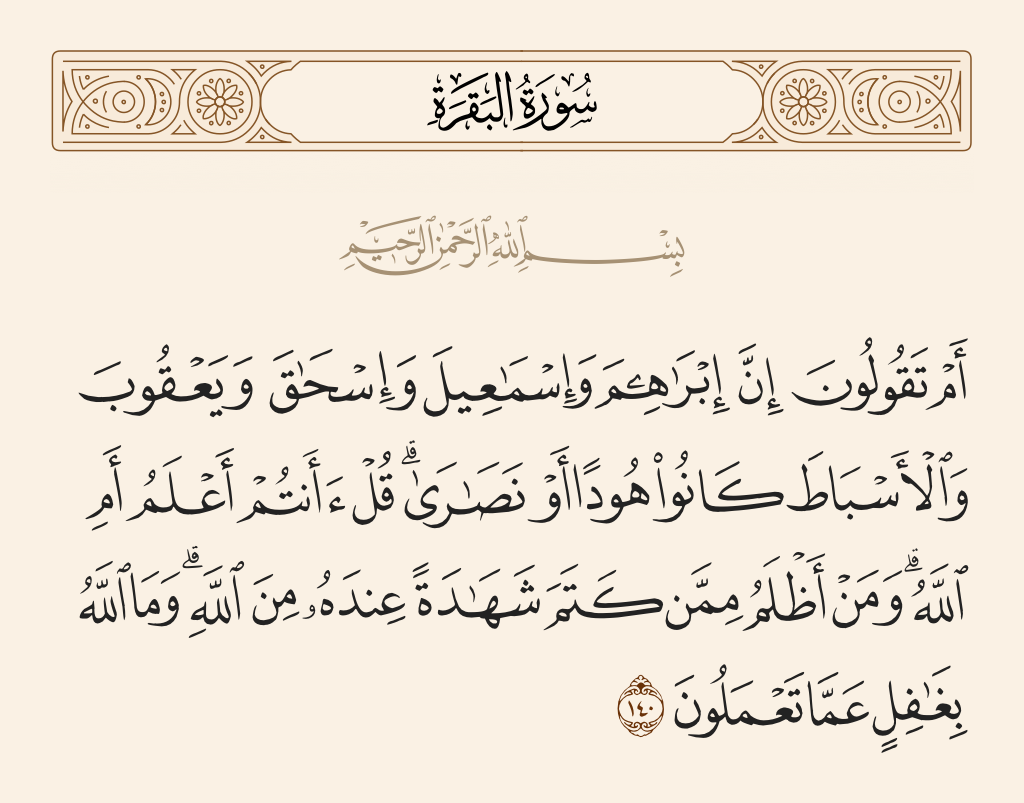 سُورَةُ البَقَرَةِ
بِسْمِ ٱللَّهِ ٱلرَّحْمَٰنِ ٱلرَّحِيمِ
أَمْ تَقُولُونَ إِنَّ إِبْرَٰهِـۧمَ وَإِسْمَٰعِيلَ وَإِسْحَٰقَ وَيَعْقُوبَ
وَٱلْأَسْبَاطَ كَانُوا۟ هُودًا أَوْ نَصَٰرَىٰ ۗ قُلْ ءَأَنتُمْ أَعْلَمُ أَمِ
ٱللَّهُ ۗ وَمَنْ أَظْلَمُ مِمَّن كَتَمَ شَهَٰدَةً عِندَهُۥ مِنَ ٱللَّهِ ۗ وَمَا ٱللَّهُ
بِغَٰفِلٍ عَمَّا تَعْمَلُونَ ١٤٠